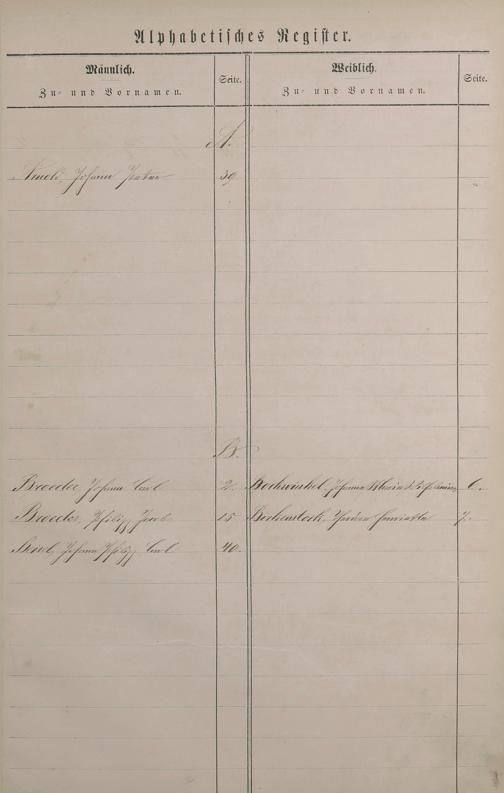 Alphabetisches Register.
Männlich.
Zu- und Vornamen.
Seite.
Weiblich.
Zu- und Vornamen.
Seite.
A.
Johann Peter 39
B.
Broeder, Johann Carl 2. Bockwinkel, Johanna Maria 6.
Broeder, Philipp Jacob 15 Birkenstock, Henriette 7.
Johann Philipp Carl 40.